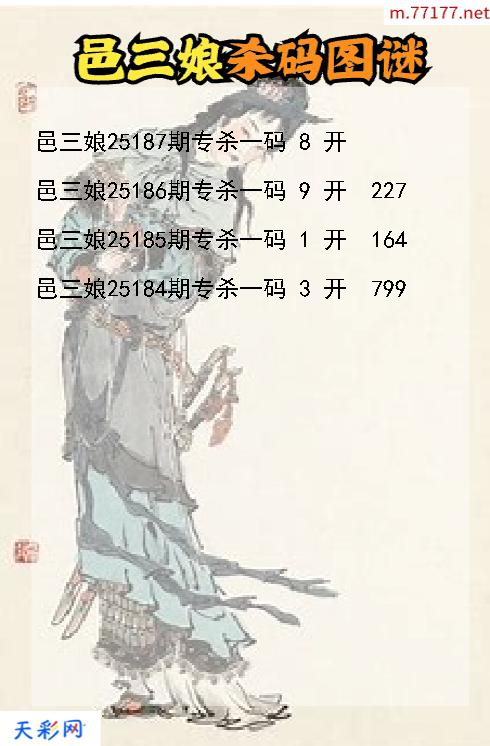 m.77177.net
邑三娘杀码图谜
邑三娘25187期专杀一码 8 开
邑三娘25186期专杀一码 9 开 227
邑三娘25185期专杀一码 1 开 164
邑三娘25184期专杀一码 3 开 799
天彩网